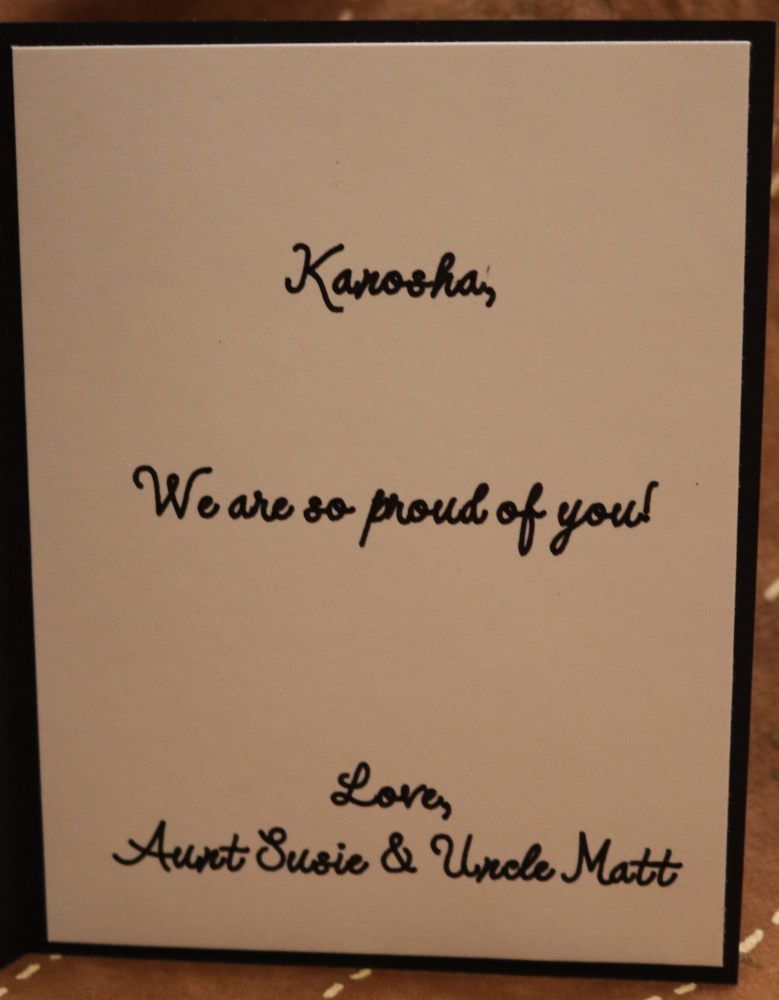 Kanosha,
We are so proud of you!
Love,
Aunt Susie & Uncle Matt